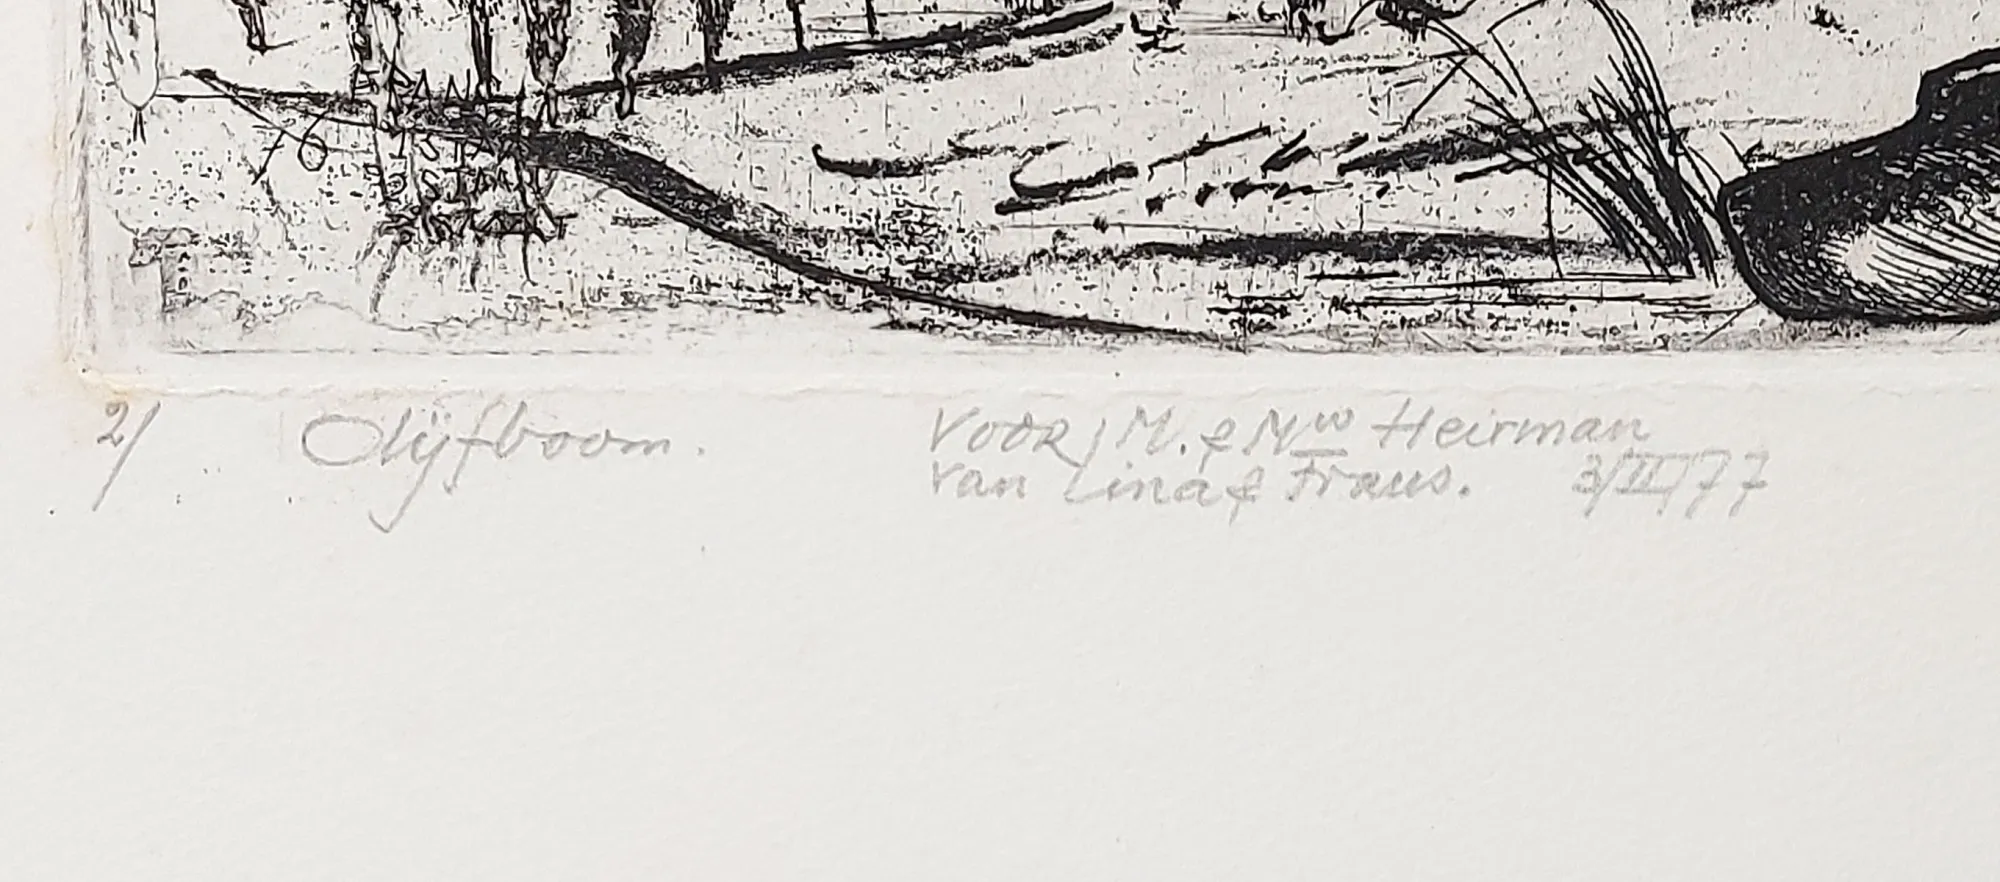 FRANS
76
2/ Olijfboom. Voor M. & Mw Heirman
van Lina & Frans. 3/II/77